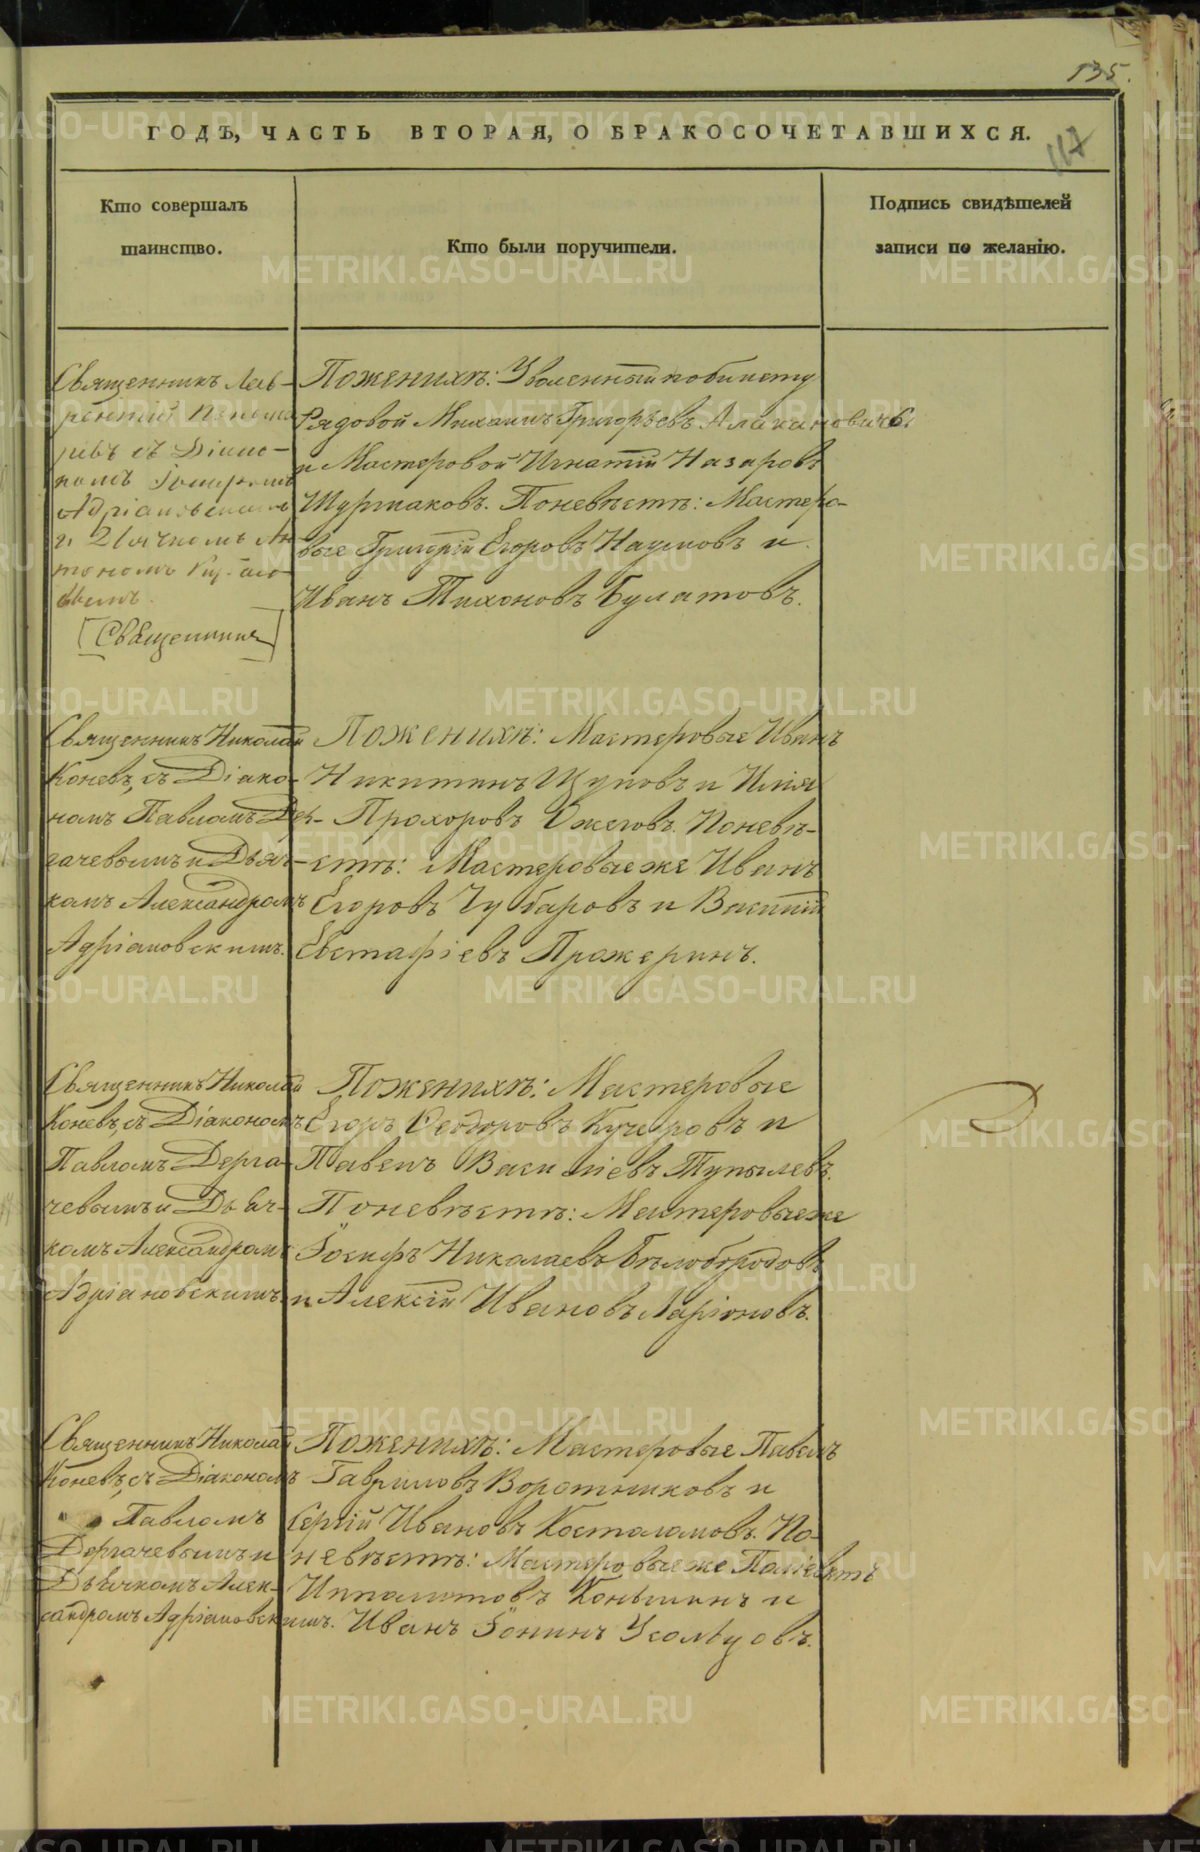 135.
ГОДѢ, ЧАСТЬ ВТОРАЯ, О БРАКОСОЧЕТАВШИХСЯ.
117
Кто совершалъ
таинство.
Кто были поручители.
Подпись свидѣтелей
записи по желанію.
Священникъ Лав-
рентій
съ Діако-
номъ
Адріановскимъ
и Дьячкомъ
[Священникъ]
Поженихѣ: Уволенный по билету
Рядовой Михаилъ Григорьевъ
и Мастеровой Игнатій Назаровъ
Шурмаковъ. Поневѣстѣ: Мастеро-
вые Григорій Егоровъ Наумовъ и
Иванъ Тихоновъ Булатовъ.
Священникъ Николай
Коневъ, съ Діако-
номъ Павломъ Дер-
гачевымъ и Дьяч-
комъ Александромъ
Адріановскимъ.
Поженихѣ: Мастеровые Иванъ
Никитинъ Щуповъ и Илія
Прохоровъ Ожеговъ. Поневѣ-
стѣ: Мастеровые же Иванъ
Егоровъ Чубаровъ и Василій
Евстафіевъ Прожеринъ.
Священникъ Николай
Коневъ, съ Діакономъ
Павломъ Дерга-
чевымъ и Дьяч-
комъ Александромъ
Адріановскимъ.
Поженихѣ: Мастеровые
Егоръ Ѳеодоровъ Кучеровъ и
Павелъ Василіевъ Тупылевъ.
Поневѣстѣ: Мастеровые же
Іосифъ Николаевъ Бѣлобородовъ
и Алексій Ивановъ Ларіоновъ.
Священникъ Николай
Коневъ, съ Діакономъ
Павломъ
Дергачевымъ и
Дьячкомъ Алек-
сандромъ Адріановскимъ.
Поженихѣ: Мастеровые Павелъ
Гавриловъ Воротниковъ и
Сергій Ивановъ Костоломовъ. По-
невѣстѣ: Мастеровые же
Ипполитовъ Коньшинъ и
Иванъ Іонинъ Усольцовъ.